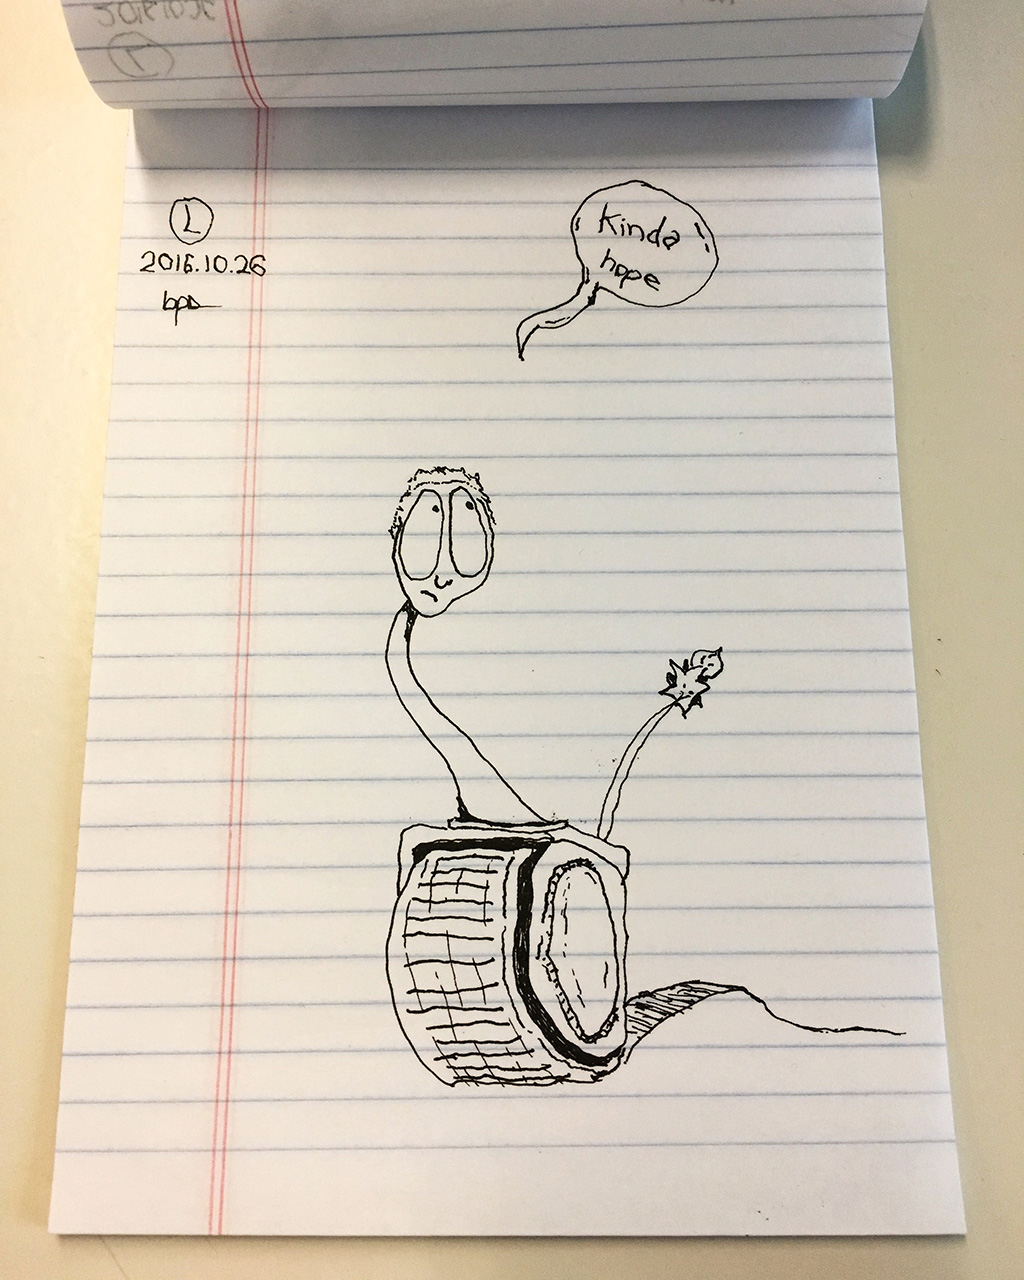 L
2016.10.26
bpa
Kinda
hope